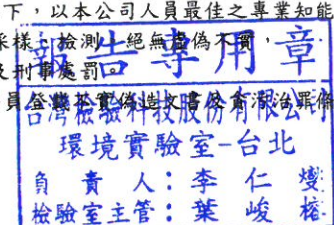 下，以本公司人員最佳之專業知能
采樣、檢測，絕無虛偽不實，
及刑事處罰。
員登載不實偽造文書及貪污治罪條
報告專用章
台灣檢驗科技股份有限公司
環境實驗室-台北
負責人：李仁燮
檢驗室主管：葉峻榕